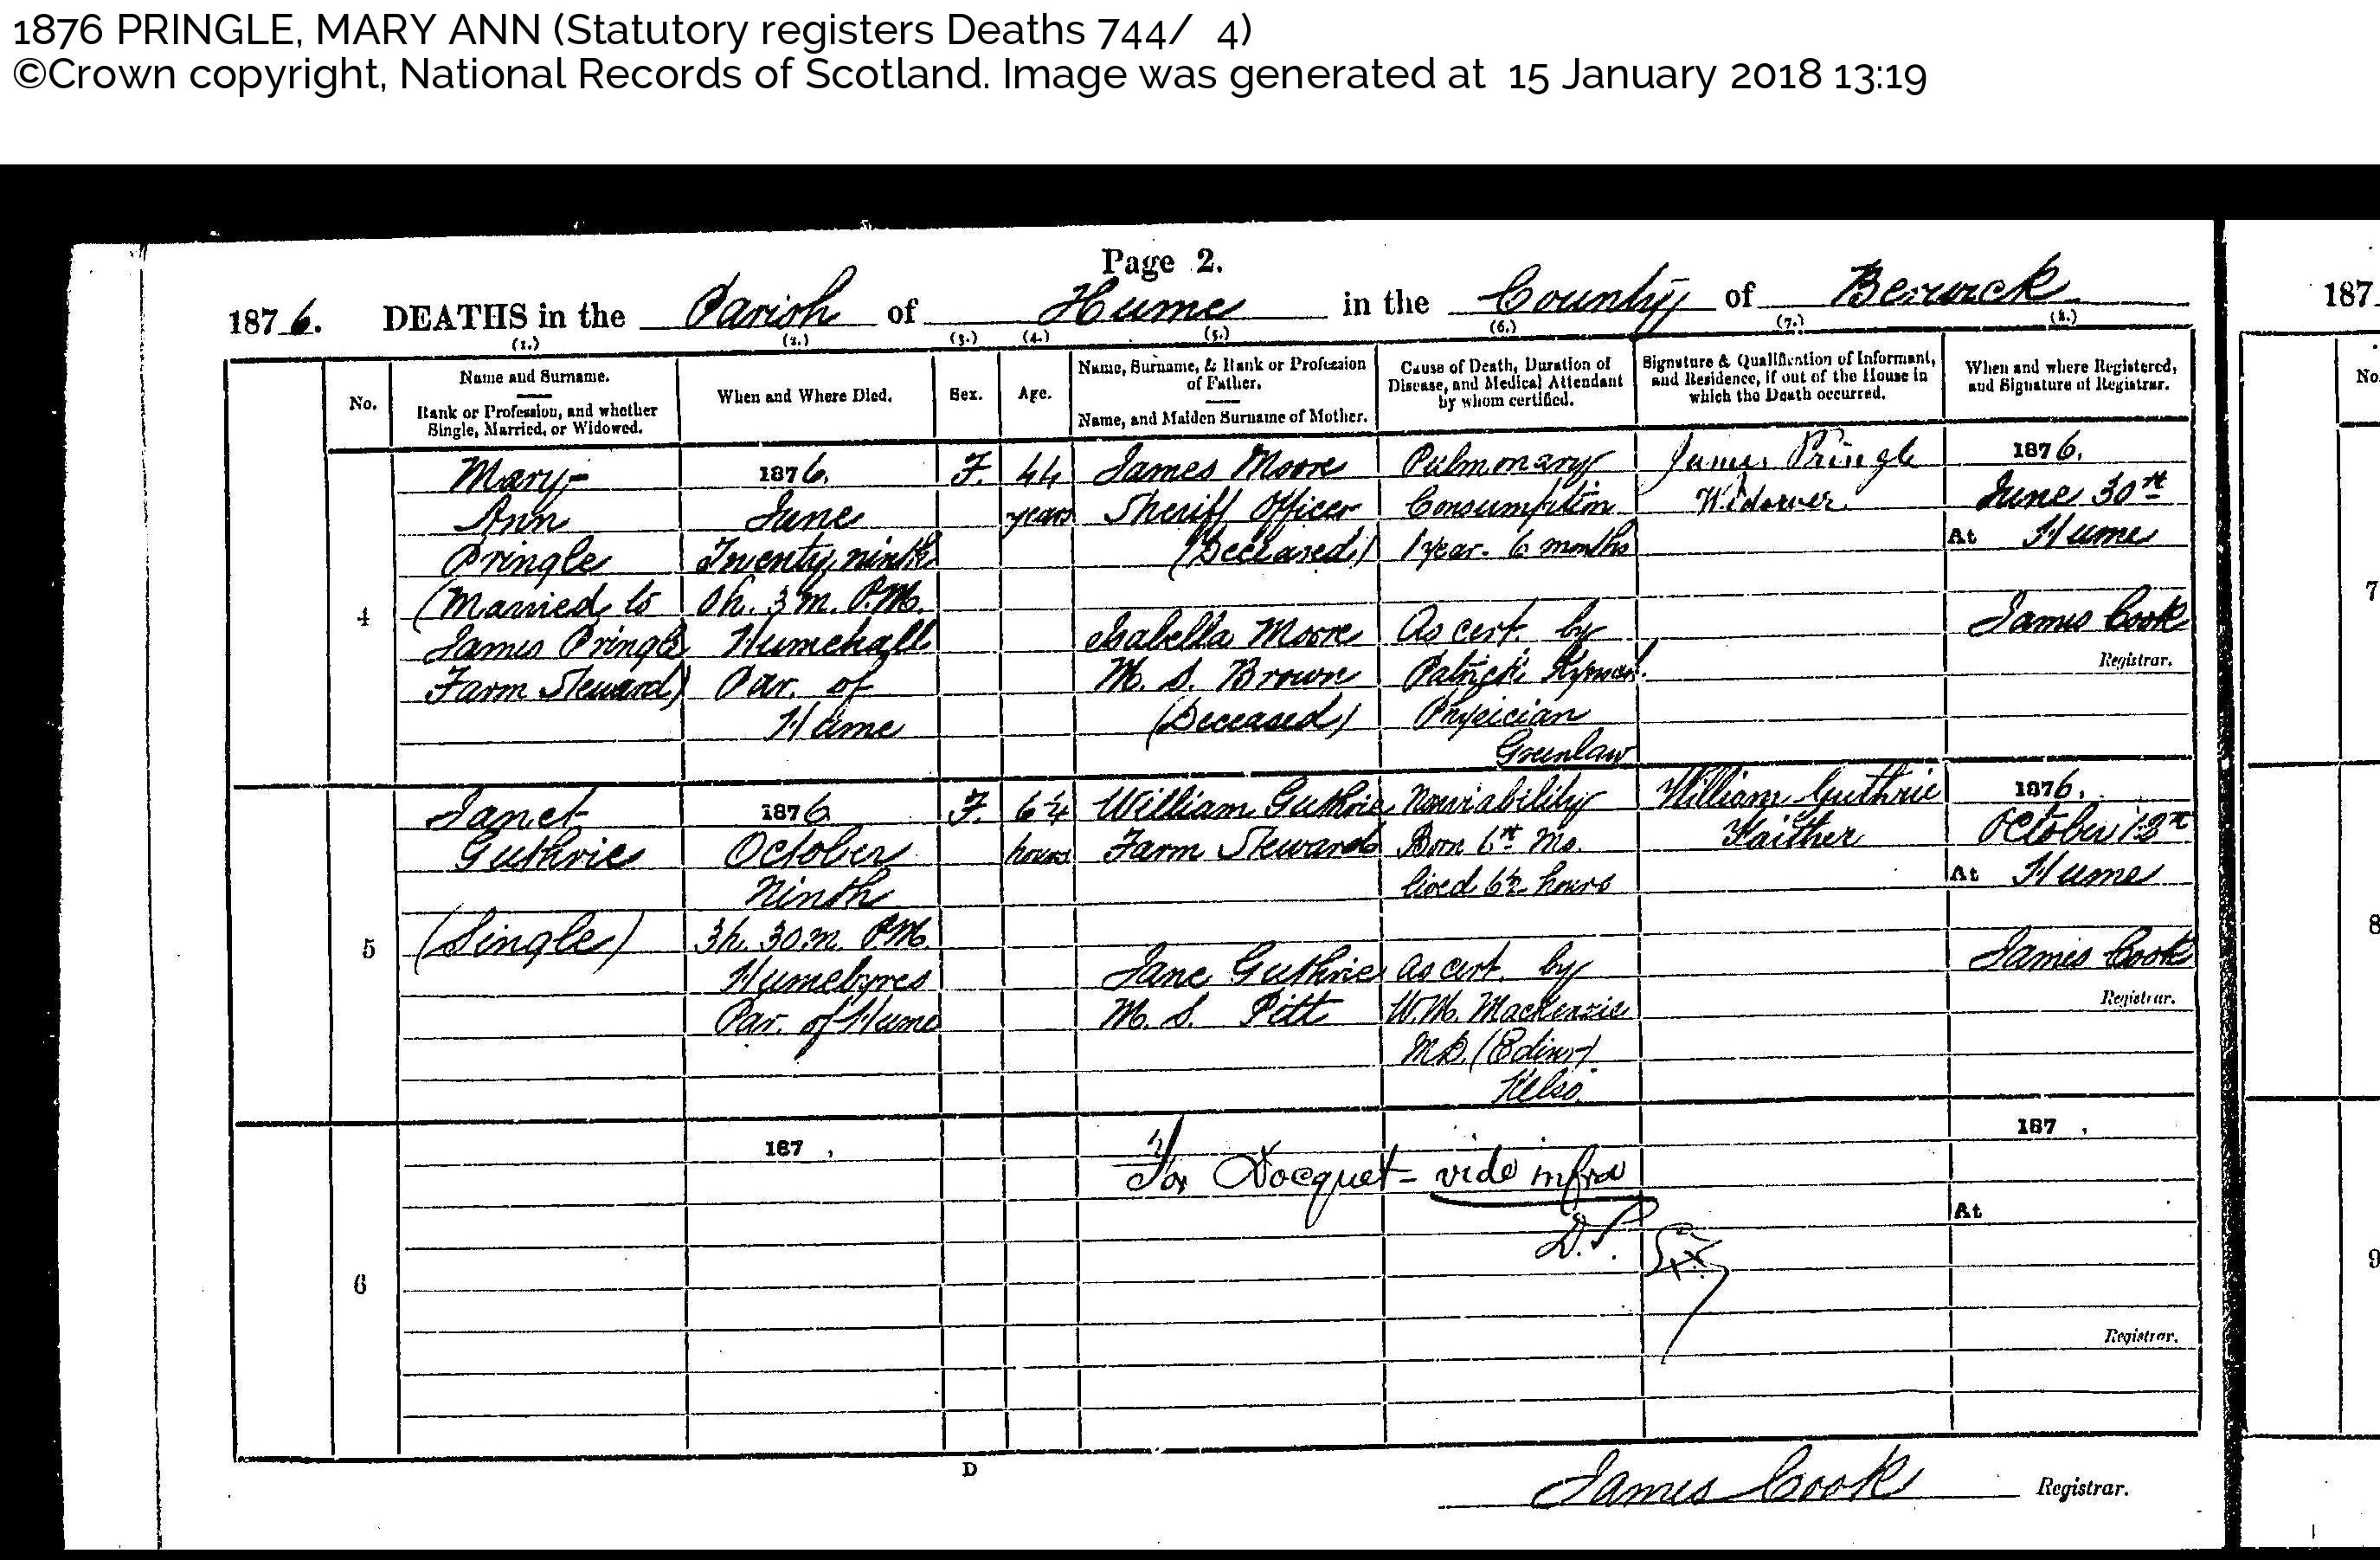 1876 PRINGLE, MARY ANN (Statutory registers Deaths 744/ 4)
©Crown copyright, National Records of Scotland. Image was generated at 15 January 2018 13:19
Page 2.
1876. DEATHS in the Parish of Hume in the County of Berwick
187
(1.) (2.) (3.) (4.) (5.) (6.) (7.) (8.)
No.
Name and Surname.
Rank or Profession, and whether
Single, Married, or Widowed.
When and Where Died.
Sex.
Age.
Name, Surname, & Rank or Profession
of Father.
Name, and Maiden Surname of Mother.
Cause of Death, Duration of
Disease, and Medical Attendant
by whom certified.
Signature & Qualification of Informant,
and Residence, if out of the House in
which the Death occurred.
When and where Registered,
and Signature of Registrar.
No
4
Mary-
Ann
Pringle
(Married to
James Pringle
Farm Steward)
1876,
June
Twenty ninth
0h. 3m. P.M.
Humehall
Par. of
Hume
F.
44
years
James Moore
Sheriff Officer
(Deceased)
Isabella Moore
M. S. Brown
(Deceased)
Pulmonary
Consumption
1 year. 6 months
As cert. by
Patrick
Physician
Greenlaw
James Pringle
Widower.
1876,
June 30th
At Hume
James Cook
Registrar.
7
5
Janet
Guthrie
(Single)
1876
October
Ninth
3h. 30m. P.M.
Humebyres
Par. of Hume
F.
hours
William Guthrie
Farm Steward
Jane Guthrie
M. S. Pitt
Nonviability
Born 6th Mo.
lived 6½ hours
as cert. by
W.M. Mackenzie
M.D. (Edinr)
Kelso.
William Guthrie
Faither
1876,
October 13th
At Hume
James Cook
Registrar.
8
6
187 ,
For Docquet - vide infra
D.P.
187 ,
At
Registrar.
9
D
James Cook Registrar.